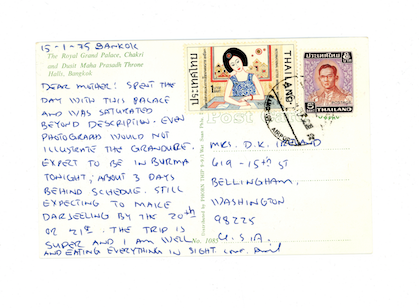 15-1-75 BANGKOK
The Royal Grand Palace, Chakri
and Dusit Maha Prasadh Throne
Halls, Bangkok
DEAR MOTHER! SPENT THE
DAY WITH THIS PALACE
AND WAS SATURATED
BEYOND DESCRIPTION. EVEN
PHOTOGRAPHS WOULD NOT
ILLUSTRATE THE GRANDURE.
EXPECT TO BE IN BURMA
TONIGHT; ABOUT 3 DAYS
BEHIND SCHEDULE. STILL
EXPECTING TO MAKE
DARJEELING BY THE 20th
OR 21st. THE TRIP IS
SUPER AND I AM WELL
AND EATING EVERYTHING IN SIGHT LOVE
No. 1085
Post Card
ประเทศไทย
THAILAND
ประเทศไทย
5
THAILAND
MRS. D.K. IRELAND
619-15th ST
BELLINGHAM,
WASHINGTON
98225
U.S.A.